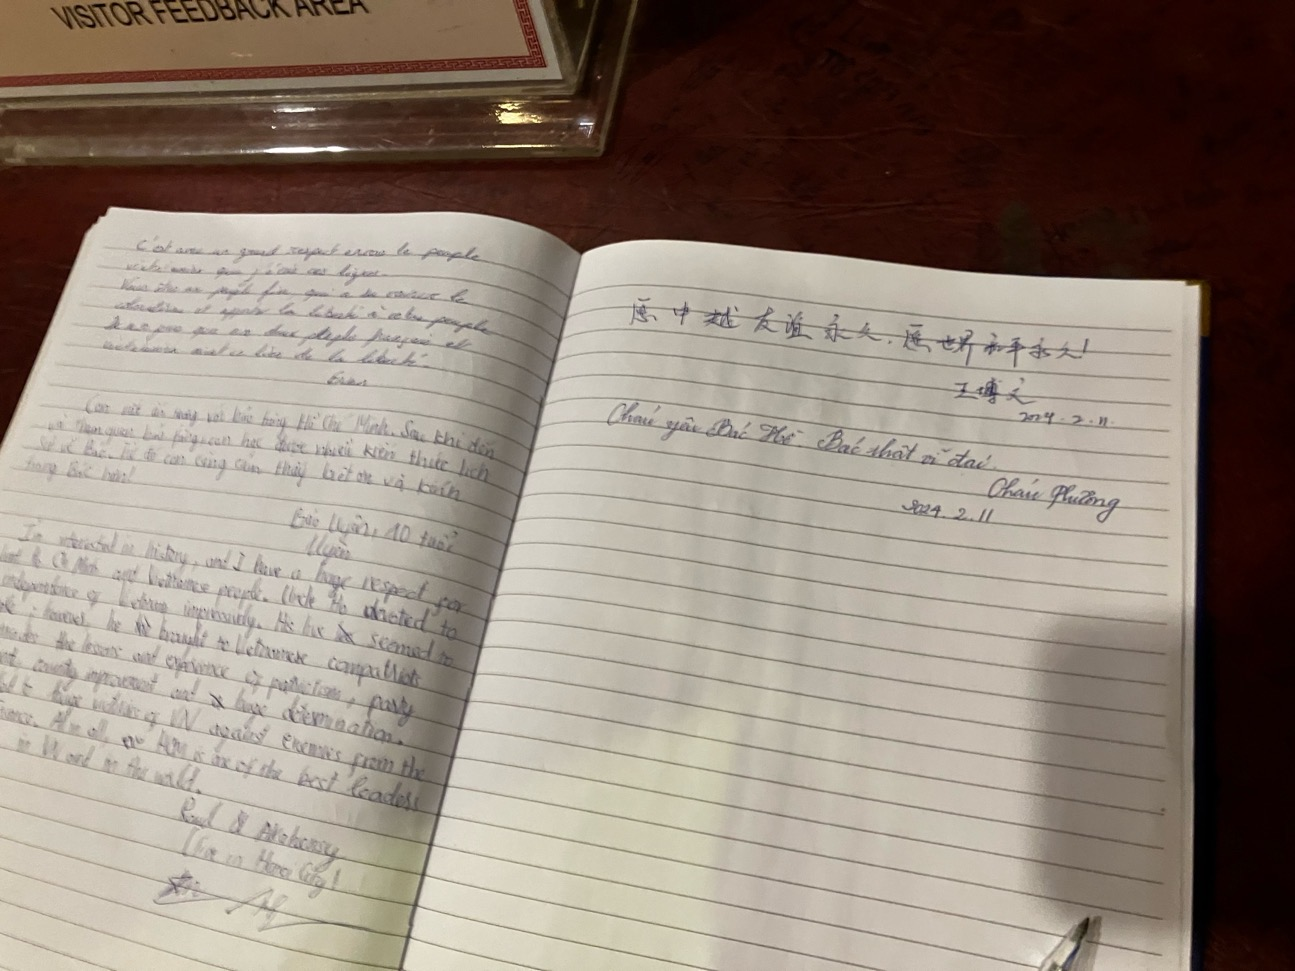 VISITOR FEEDBACK AREA
C'est avec un grand respect envers le peuple
vietnamien que j'écris ces lignes.
Vous êtes un peuple fier qui a su vaincre le
et apporter la liberté à votre peuple
que nos deux peuples français et
de la liberté.
Con rất ấn tượng với bảo tàng Hồ Chí Minh. Sau khi đến
và tham quan bảo tàng, con học được nhiều kiến thức lịch
sử về Bác. Từ đó con càng cảm thấy biết ơn và kính
trọng Bác hơn!
Bảo Uyên, 10 tuổi
Uyên
I'm interested in history, and I have a huge respect for
Chi Minh and Vietnamese people. Uncle Ho devoted to
independence of Vietnam His life seemed to
however, he brought to Vietnamese compatriots
the lessons and experience of patriotism, party
country improvement and huge determination.
huge victories of VN against enemies from the
France. Above all, HCM is one of the best leaders
in VN and in the world.
I live in Hanoi City!
愿中越友谊永久,愿世界和平永久!
王博文
2024.2.11.
Cháu yêu Bác Hồ Bác thật vĩ đại.
Cháu Phương
2024.2.11